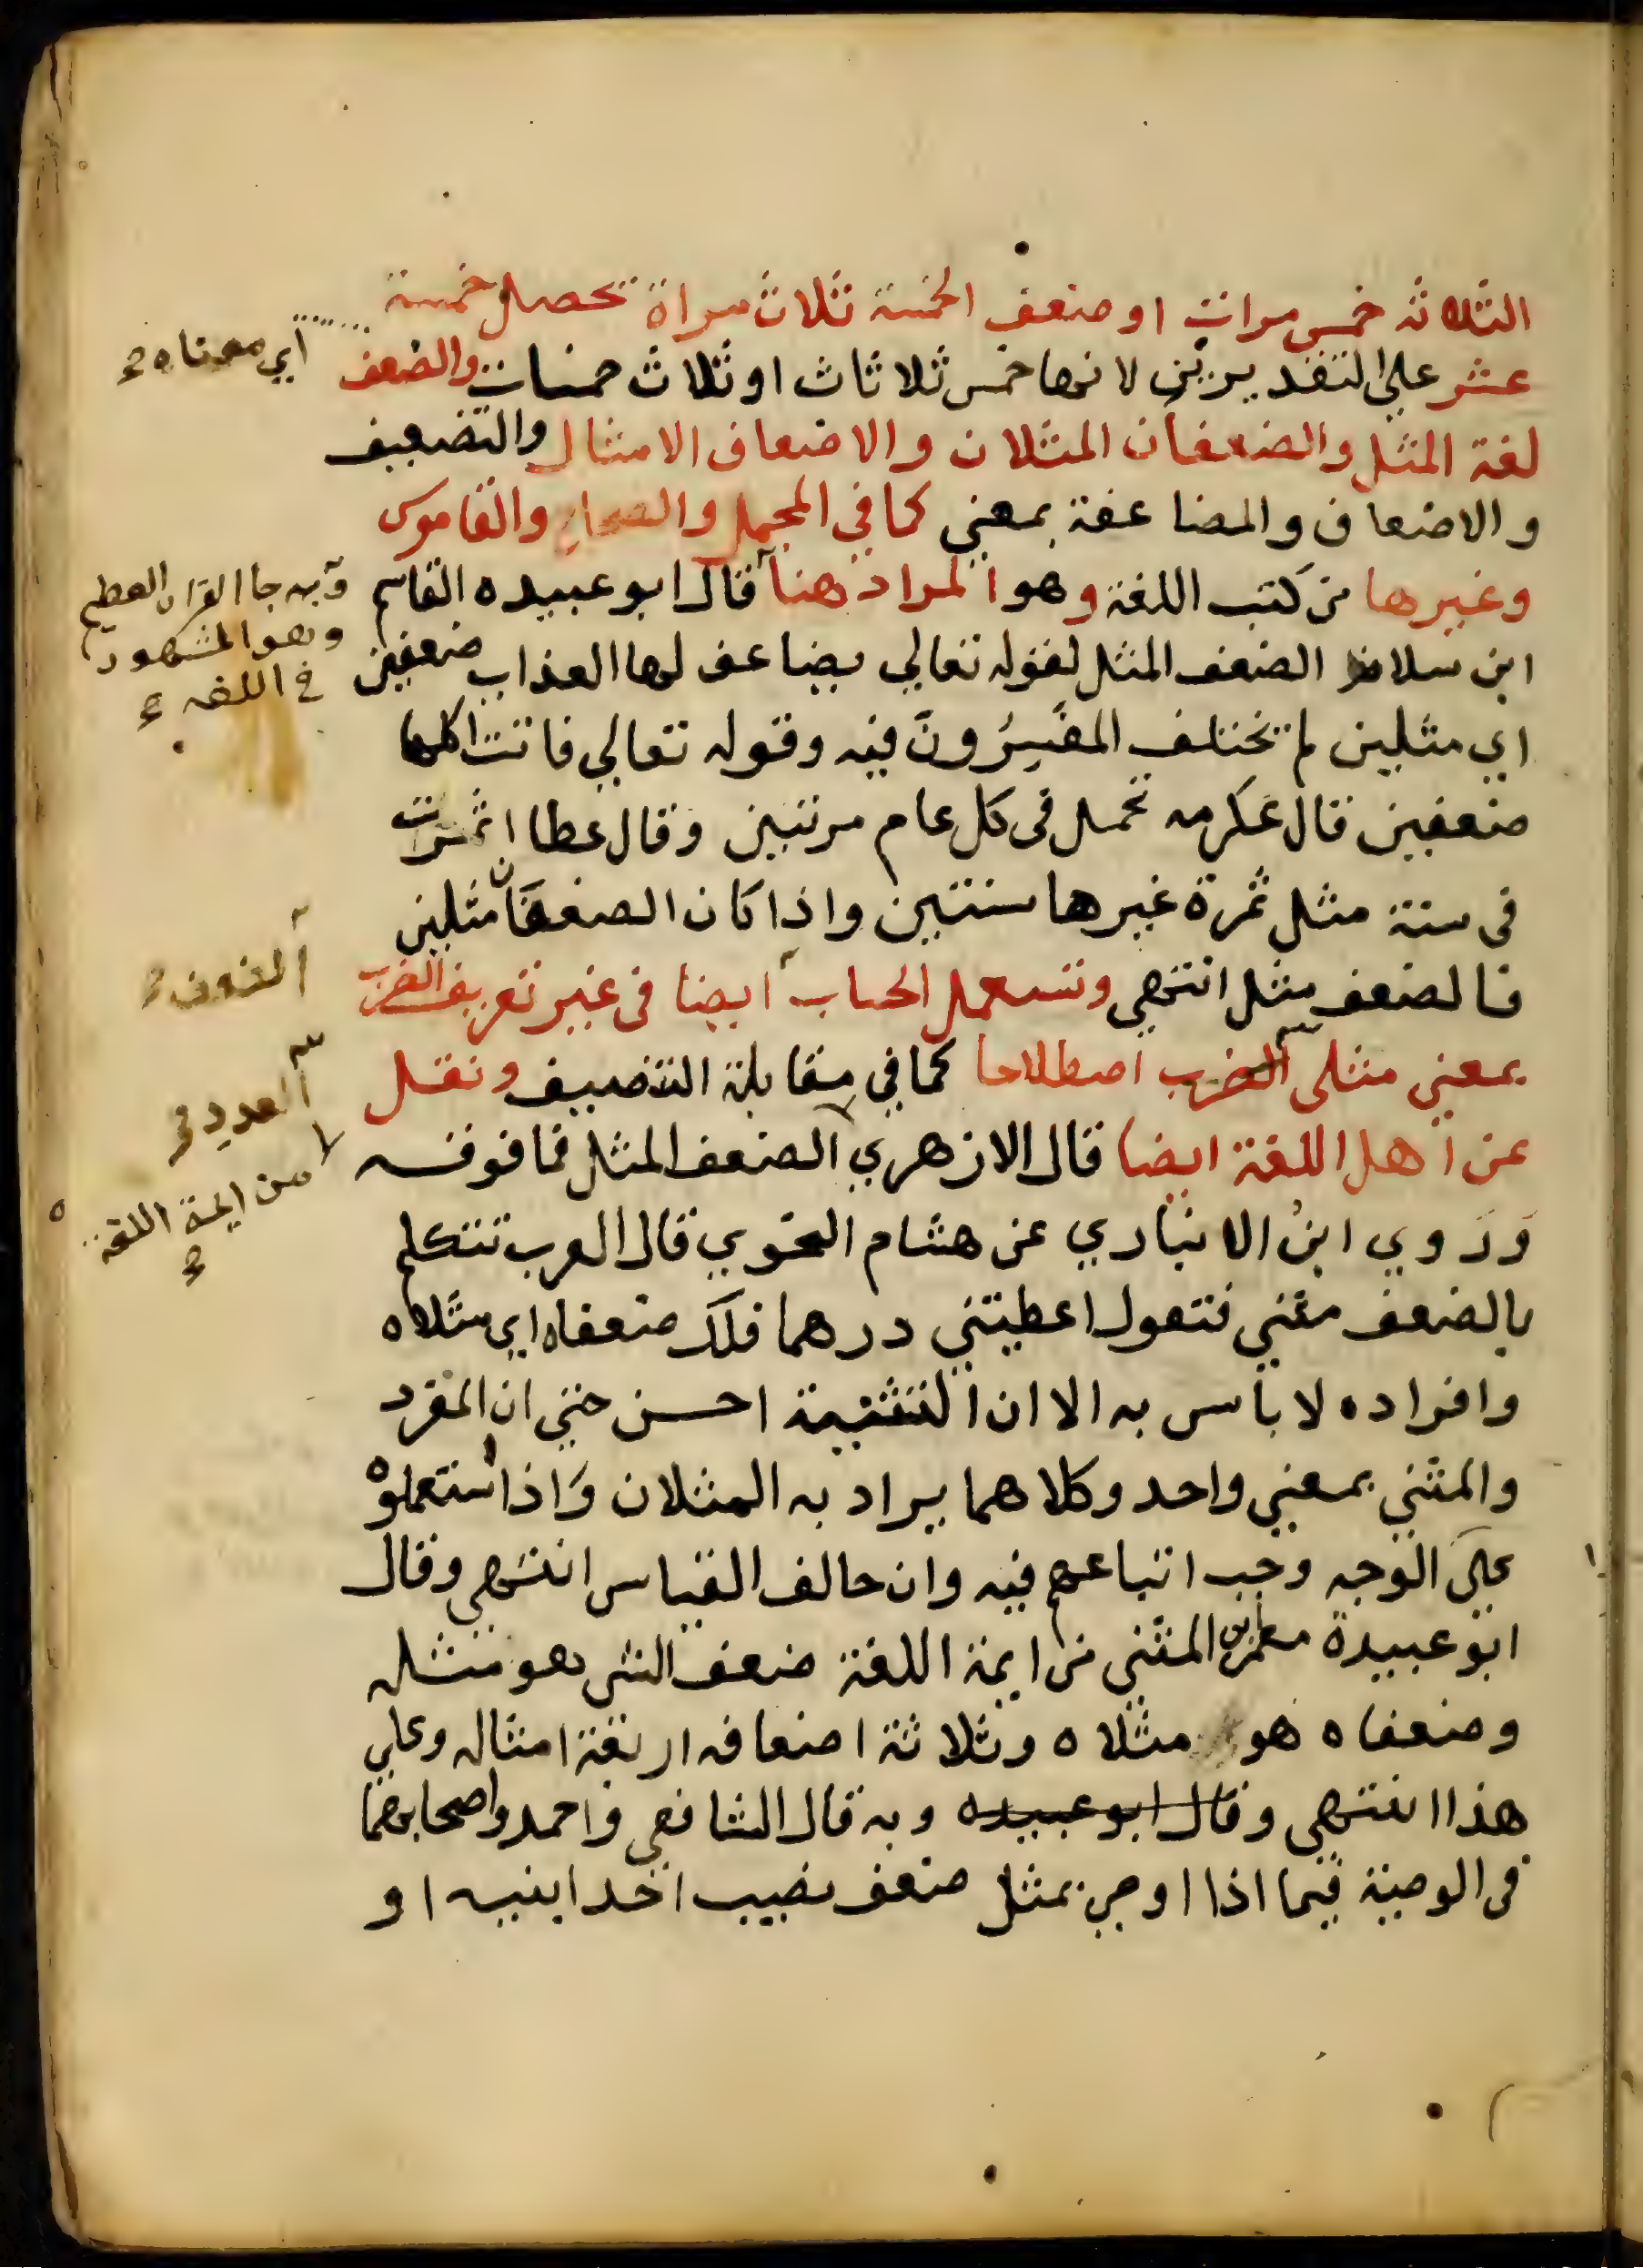 الثلاثه خمس مرات او ضعف الخمسة ثلاث مراة تحصل خمسة
عشر على التقديرين لانها خمس ثلاثات او ثلاث خمسات والضعف
اي معناه
لغة المثل والضعفان المثلان والاضعاف الامثال والتضعيف
والاضعاف والمضاعفة بمعني كما في المجمل والصحاح والقاموس
وغيرها من كتب اللغة وهو المراد هنا قال ابو عبيده القاسم
وبه جا القران العظيم
وهو المشهور
في اللغه
ابن سلام الضعف المثل لقوله تعالي يضاعف لها العذاب ضعفين
اي مثلين لم تختلف المفَسِرُونَ فيه وقوله تعالي فاتت اكلها
ضعفين قال عكرمه تحمل في كل عام مرتين وقال عطا اثمرت
في سنة مثل ثمرة غيرها سنتين واذا كان الضعفان مثلين
فالضعف مثل انتهي وتستعمل الحساب ايضا في غير تعريف الضرب
الضعف
بمعني مثلى الضرب اصطلاحا كما في مقابلة التنصيف ونقل
العدد
عن اهل اللغة ايضا قال الازهري الضعف المثل فما فوقه
من ايمة اللغة
وَرَوي ابنُ الانباري عن هشام النحوي قال العرب تتكلم
بالضعف مثني فتقول اعطيتني درهما فلك ضعفاه اي مثلاه
وافراده لا باس به الا ان التثنية احسن حتي ان المفرد
والمثني بمعني واحد وكلاهما يراد به المثلان وَاذا استعملوه
علىَ الوجه وجب اتباعهم فيه وان خالف القياس انتهي وقال
ابو عبيدة معمر بن المثني من ايمة اللغة ضعف الشي هو مثله
وضعفاه هو مثلاه وثلاثة اضعافه اربعة امثاله وعلي
هذا انتهي وقال ابو عبيده وبه قال الشافعي واحمد واصحابهما
في الوصية فيما اذا اوصي بمثل ضعف نصيب احد ابنيه او